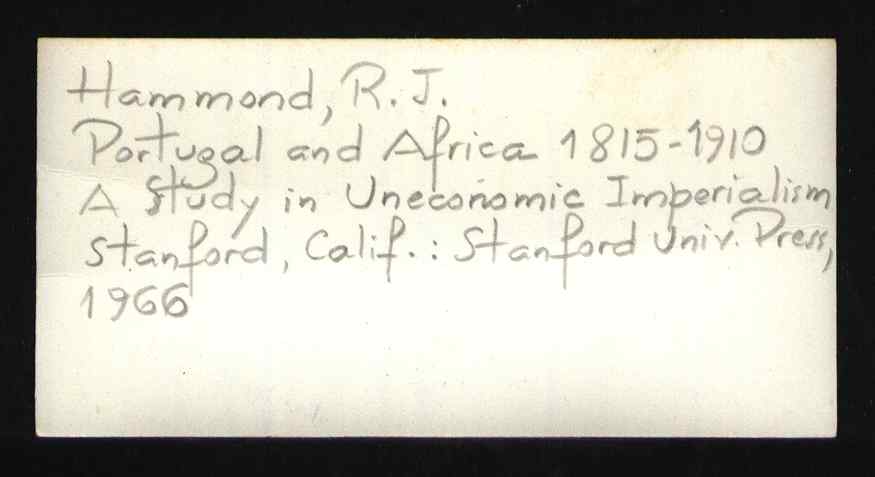 Hammond, R. J.
Portugal and Africa 1815-1910
A Study in Uneconomic Imperialism
Stanford, Calif.: Stanford Univ. Press,
1966